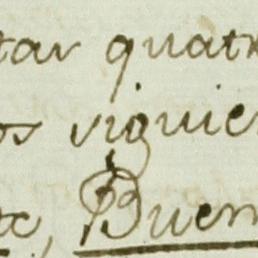 tar quatr
os viguier
te, Buen